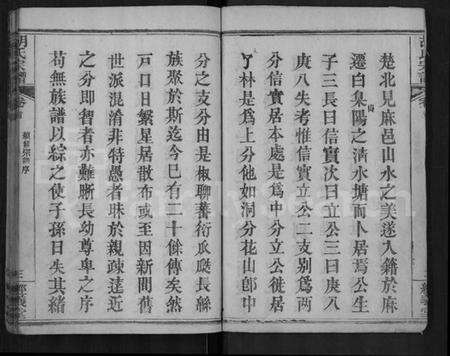 楚北見麻邑山水之美遂入籍於麻
遷白臬陽之清水塘而卜居焉公生
子三長曰信實次曰立公三曰庚八
庚八失考惟信實立公二支别爲兩
分信實居本處是爲中分立公徙居
了林是爲上分他如洞分花山郎中
分之支分由是椒聊蕃衍瓜瓞長緜
族聚於斯迄今已有二十餘傳矣然
戸口日繁星居散布或至因新間舊
世派混淆非特愚者昧於親疎遠近
之分即智者亦難晰長幼尊卑之序
苟無族譜以綜之使子孫日失其緒
胡氏宗譜
卷首
序
三